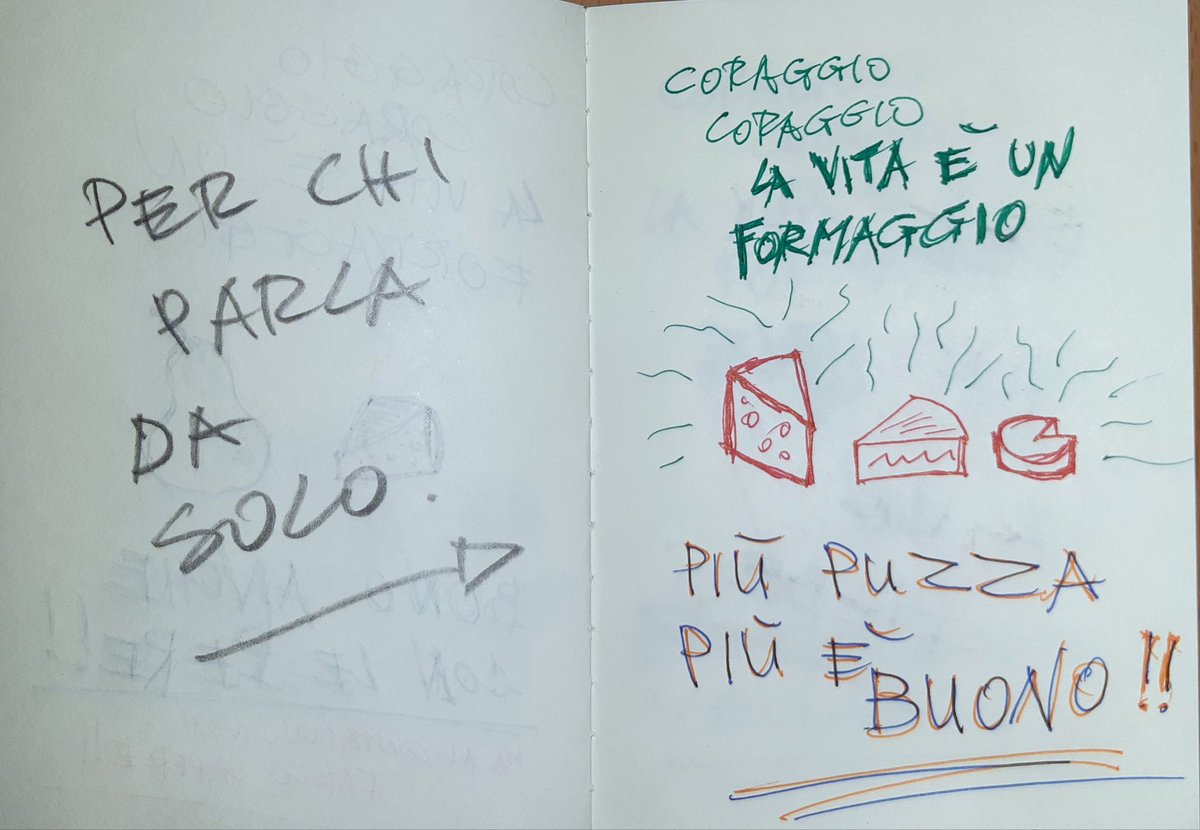 PER CHI
PARLA
DA
SOLO.
CORAGGIO
CORAGGIO
LA VITA È UN
FORMAGGIO
PIÙ PUZZA
PIÙ È
BUONO!!